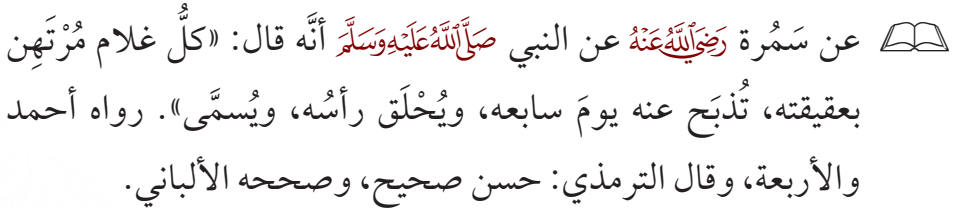 عن سَمُرة رَضِيَ اللَّهُ عَنْهُ عن النبي صَلَّى اللَّهُ عَلَيْهِ وَسَلَّمَ أنَّه قال: «كلُّ غلام مُرْتَهِن
بعقيقته، تُذبَح عنه يومَ سابعه، ويُحْلَق رأسُه، ويُسمَّى». رواه أحمد
والأربعة، وقال الترمذي: حسن صحيح، وصححه الألباني.